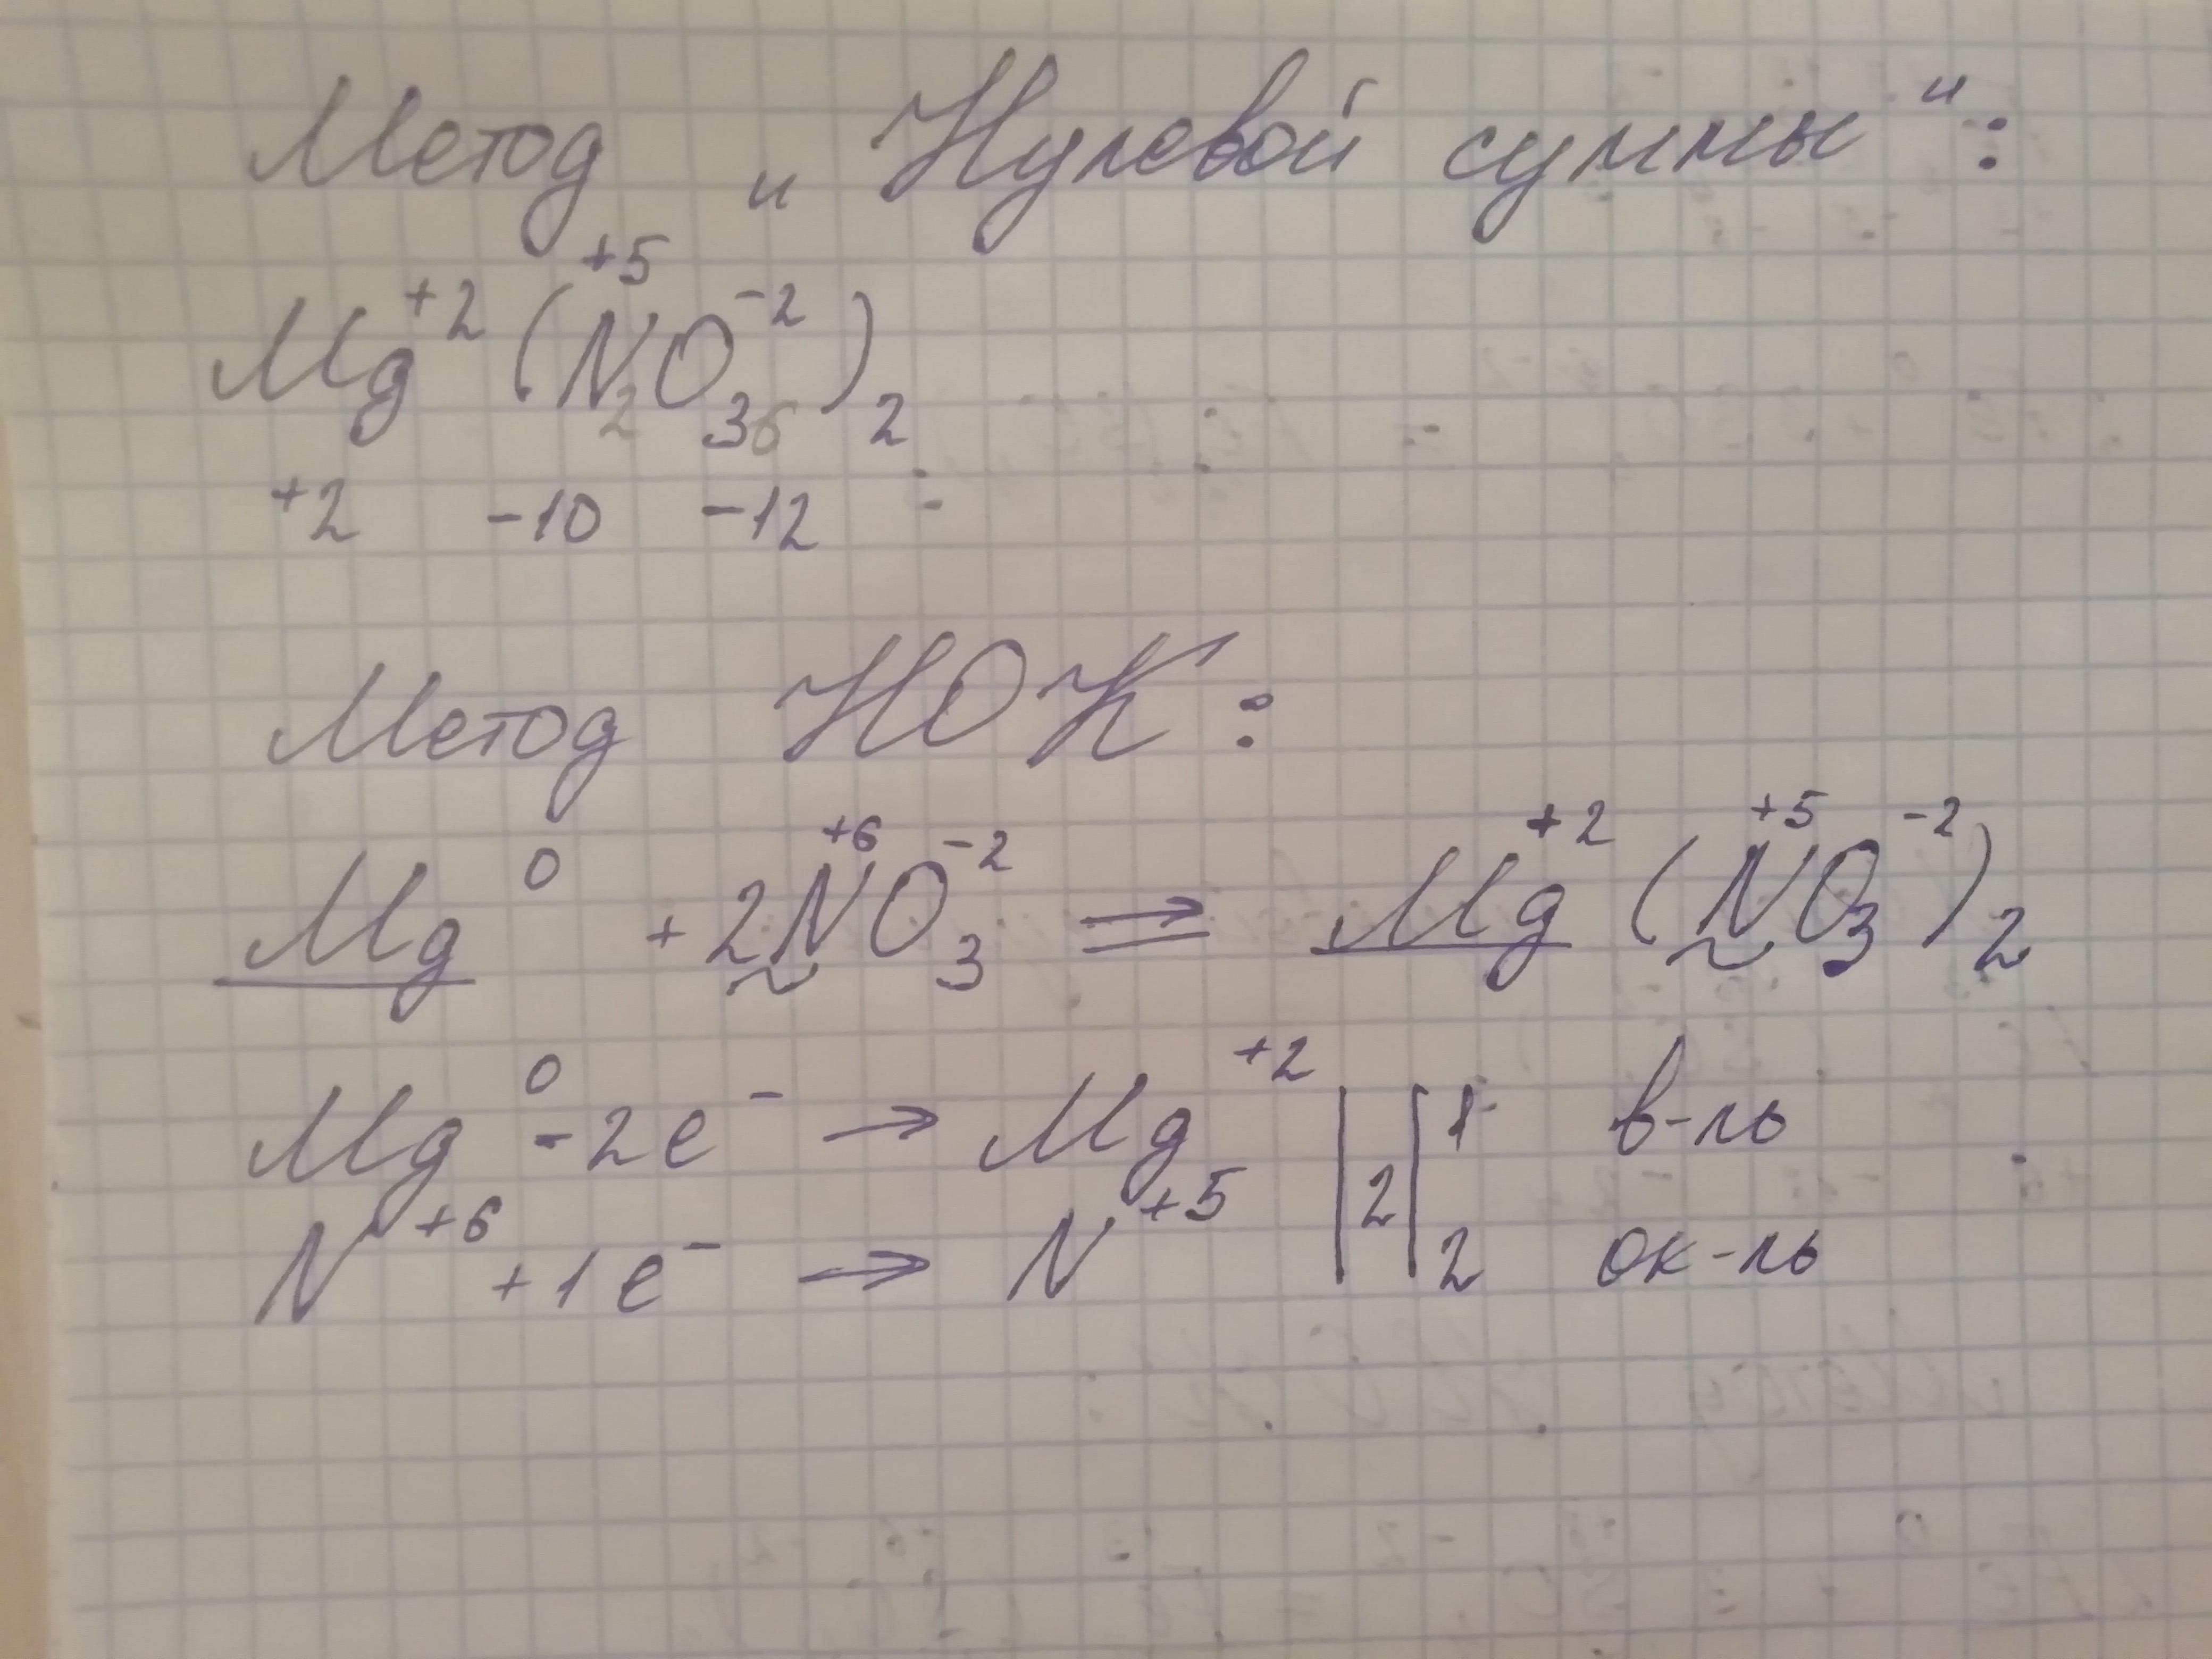 Метод „Нулевой суммы“:
Mg⁺² (N₂⁺⁵O₃₆⁻²)₂
+2 -10 -12 :
Метод НОК:
Mg⁰ + 2N⁺⁶O₃⁻² ⇒ Mg⁺² (N⁺⁵O₃⁻²)₂
Mg⁰ - 2e⁻ → Mg⁺² |2| 1 в-ль
N⁺⁶ + 1e⁻ → N⁺⁵ 2 ок-ль